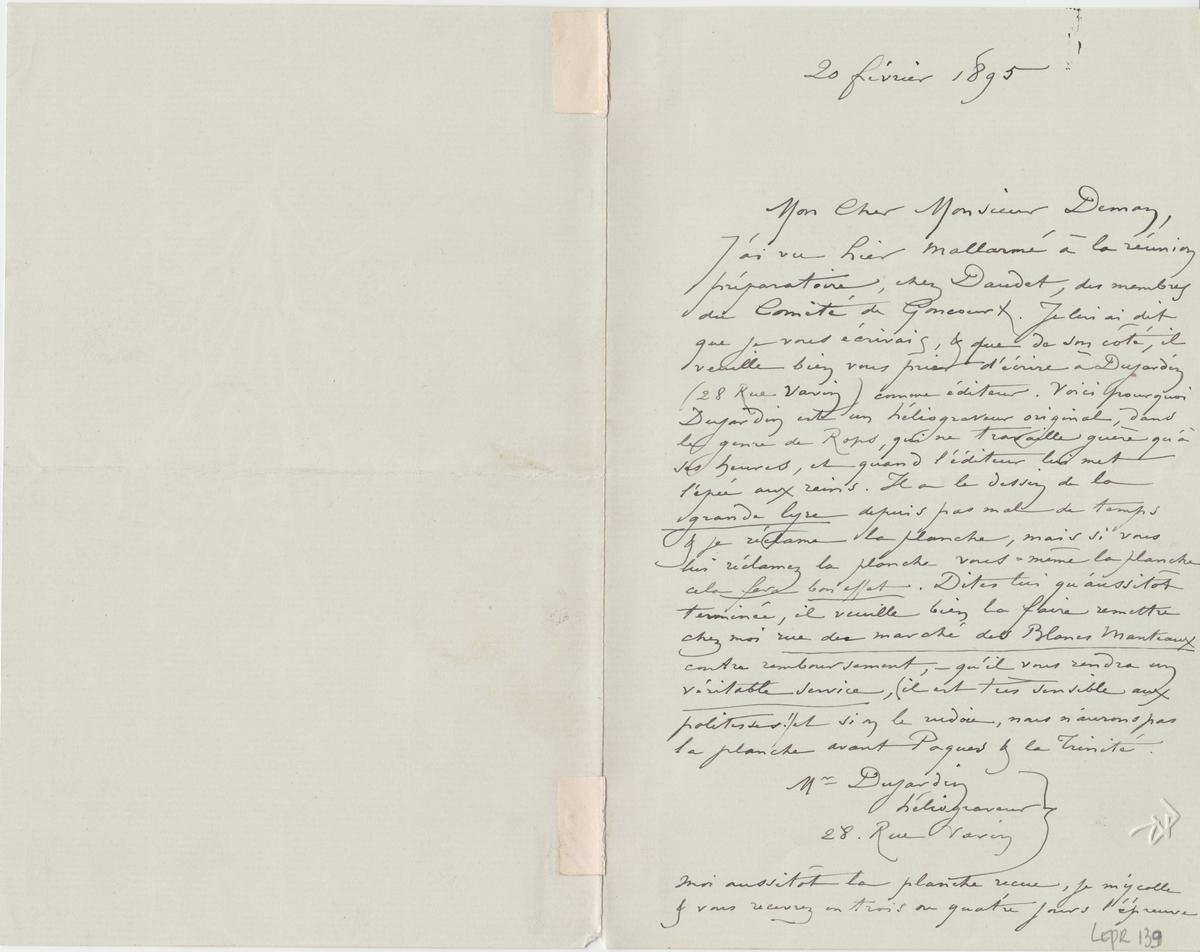 20 février 1895
Mon Cher Monsieur Deman,
J'ai vu hier Mallarmé à la réunion
préparatoire, chez Daudet, des membres
du Comité de Goncourt. Je lui ai dit
que je vous écrivais, & que de son côté, il
veuille bien vous prier d'écrire à Dujardin
(28 Rue Vavin) comme éditeur. Voici pourquoi
Dujardin est un héliograveur original, dans
le genre de Rops, qui ne travaille guère qu'à
ses heures, et quand l'éditeur lui met
l'épée aux reins. Il a le dessin de la
grande lyre depuis pas mal de temps
& je réclame la planche, mais si vous
lui réclamez la planche vous-même la planche
cela fera bon effet. Dites lui qu'aussitôt
terminée, il veuille bien la faire remettre
chez moi rue du marché des Blancs Manteaux
contre remboursement, - qu'il vous rendra un
véritable service, (il est très sensible aux
politesses!) et si on le rudoie, nous n'aurons pas
la planche avant Paques & la Trinité.
Mr Dujardin
héliograveur
28. Rue Vavin
Moi aussitôt la planche recue, je m'y colle
& vous recevrez en trois ou quatre jours l'épreuve
LEPR 139